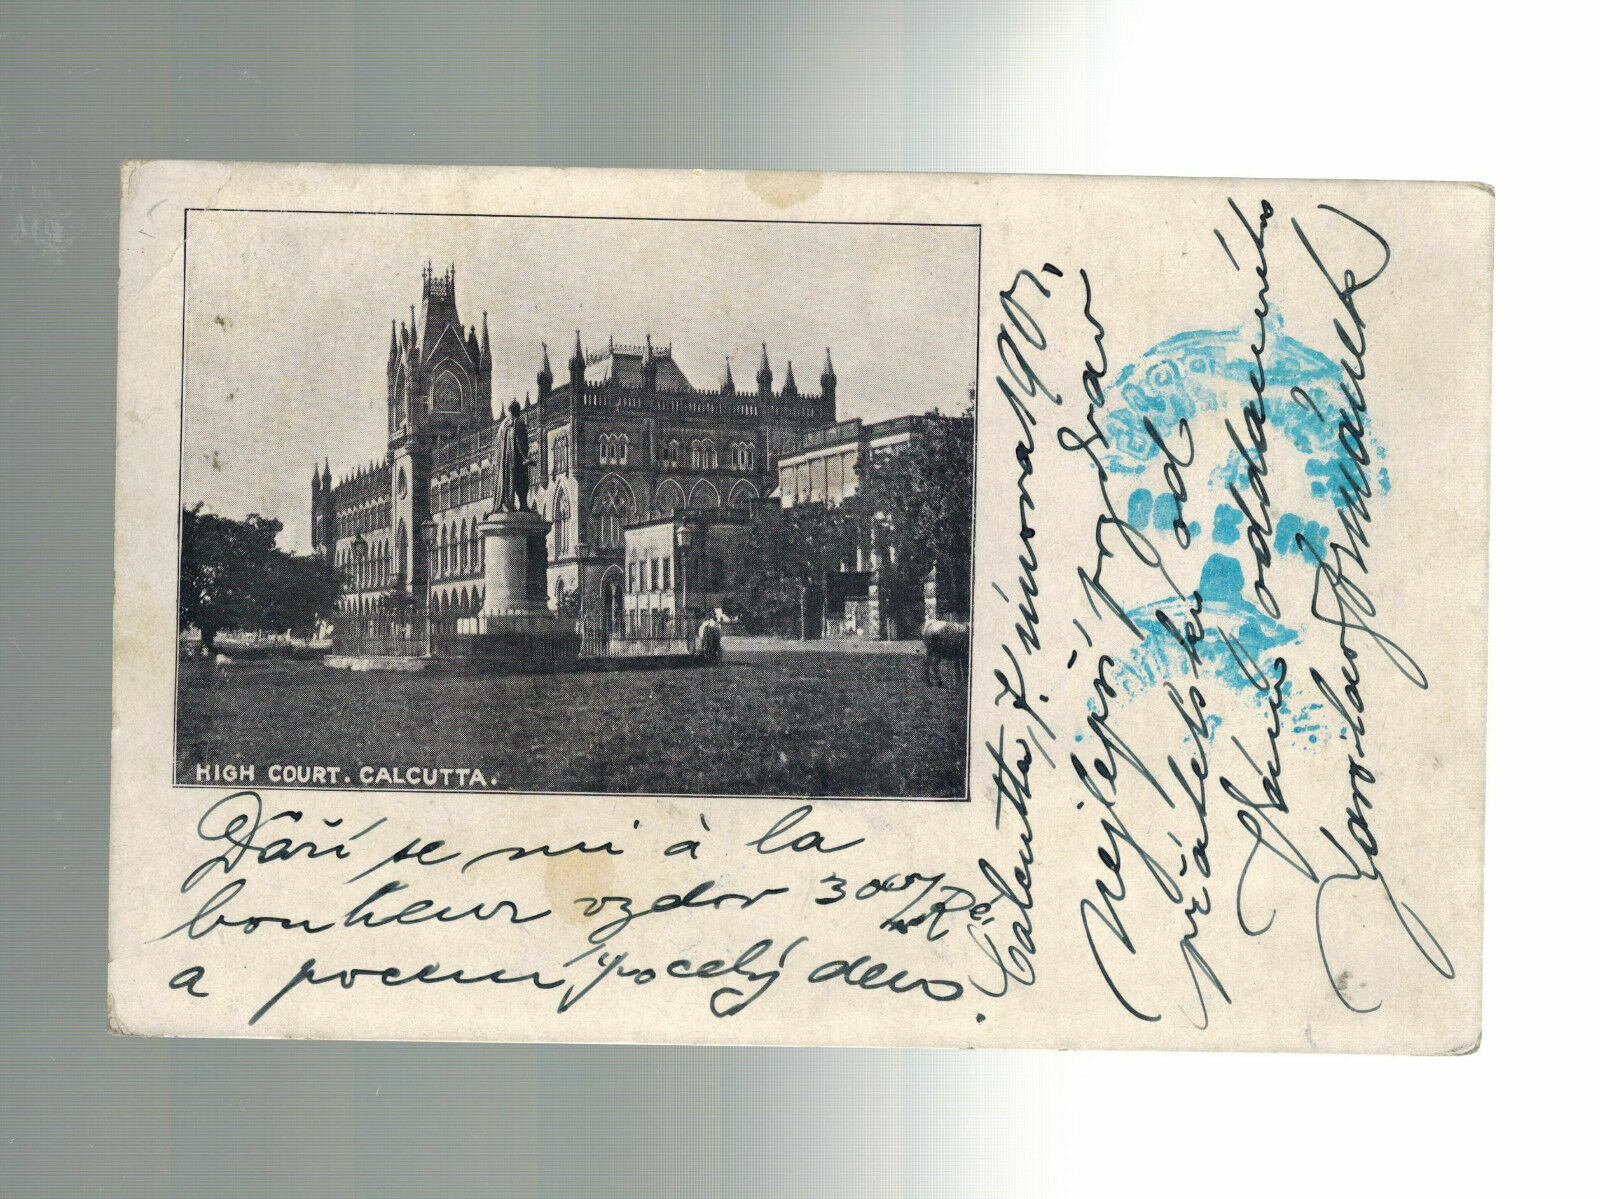 HIGH COURT. CALCUTTA.
Daří se mi à la
bonheur vzdor 30° Ré
a pocení, "po celý den.
Calcutta, 7. února 1901.
Nejlepší pozdrav
přátelský od
Vám oddaného
Jaroslav